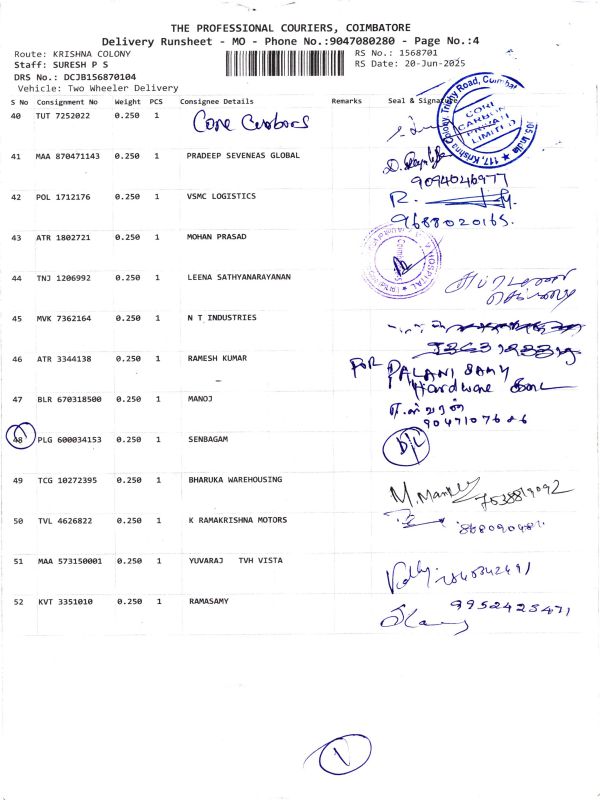 THE PROFESSIONAL COURIERS, COIMBATORE
Delivery Runsheet - MO - Phone No.:9047080280 - Page No.:4
Route: KRISHNA COLONY RS No.: 1568701
Staff: SURESH P S RS Date: 20-Jun-2025
DRS No.: DCJB156870104
Vehicle: Two Wheeler Delivery
S No Consignment No Weight PCS Consignee Details Remarks Seal & Signature
40 TUT 7252022 0.250 1 Core Carbons
CORE CARBON PRIVATE LIMITED
117, Krishna Colony, Trichy Road, Coimbatore
41 MAA 870471143 0.250 1 PRADEEP SEVENEAS GLOBAL
9094046977
42 POL 1712176 0.250 1 VSMC LOGISTICS R.
9688020165.
43 ATR 1802721 0.250 1 MOHAN PRASAD
HOSPITAL
44 TNJ 1206992 0.250 1 LEENA SATHYANARAYANAN
45 MVK 7362164 0.250 1 N T INDUSTRIES
46 ATR 3344138 0.250 1 RAMESH KUMAR FOR PALANI SAMY
Hardware கடை
47 BLR 670318500 0.250 1 MANOJ
9047107686
48 PLG 600034153 0.250 1 SENBAGAM D/L
49 TCG 10272395 0.250 1 BHARUKA WAREHOUSING 7538819092
50 TVL 4626822 0.250 1 K RAMAKRISHNA MOTORS
51 MAA 573150001 0.250 1 YUVARAJ TVH VISTA
52 KVT 3351010 0.250 1 RAMASAMY 9952425471
1